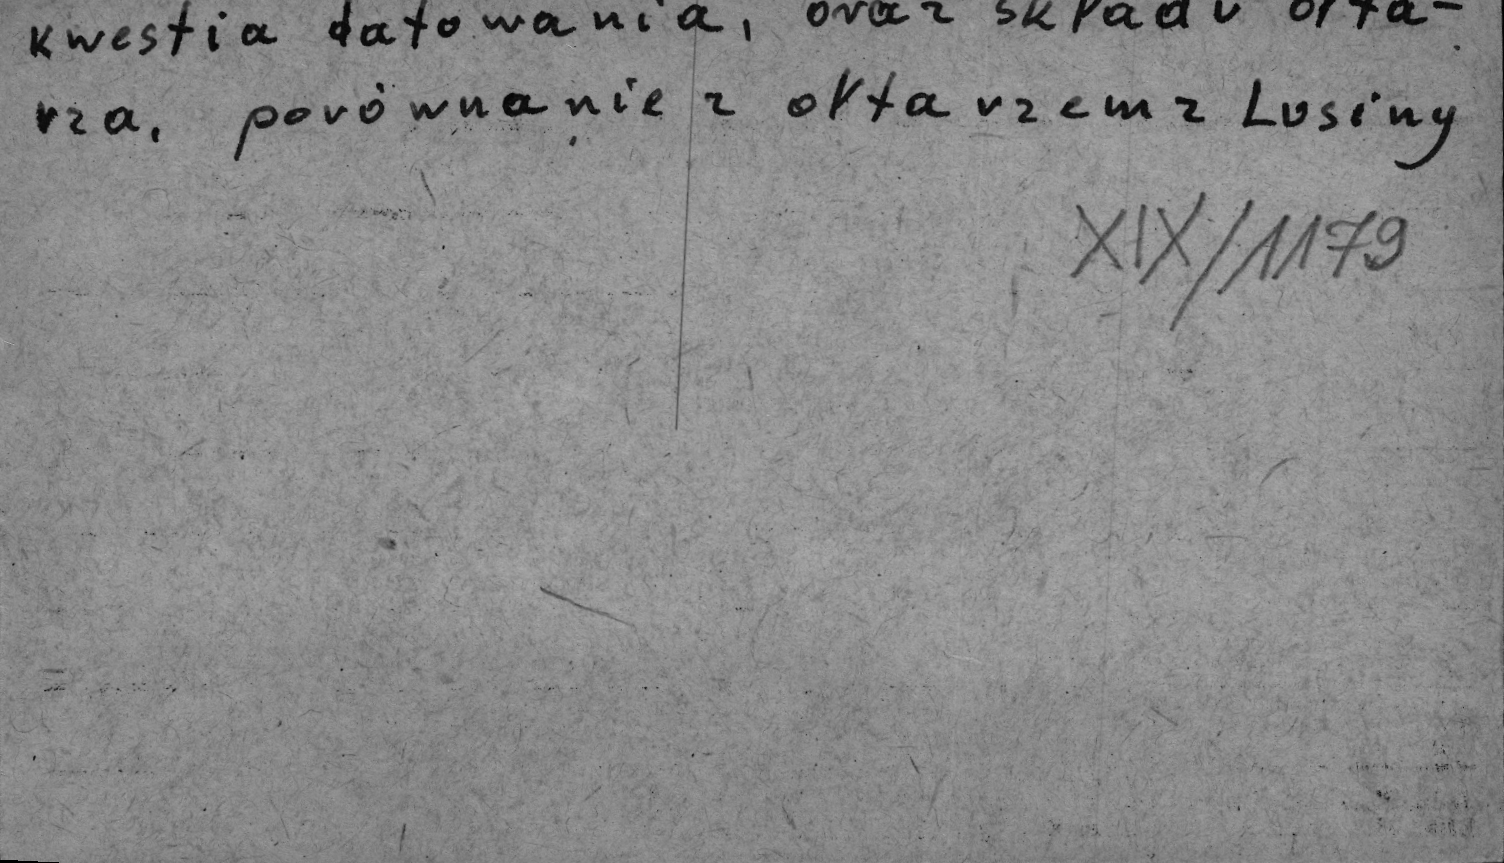 kwestia datowania, oraz składu ołta-
rza, porównanie z ołtarzem z Lusiny
XIX/1179